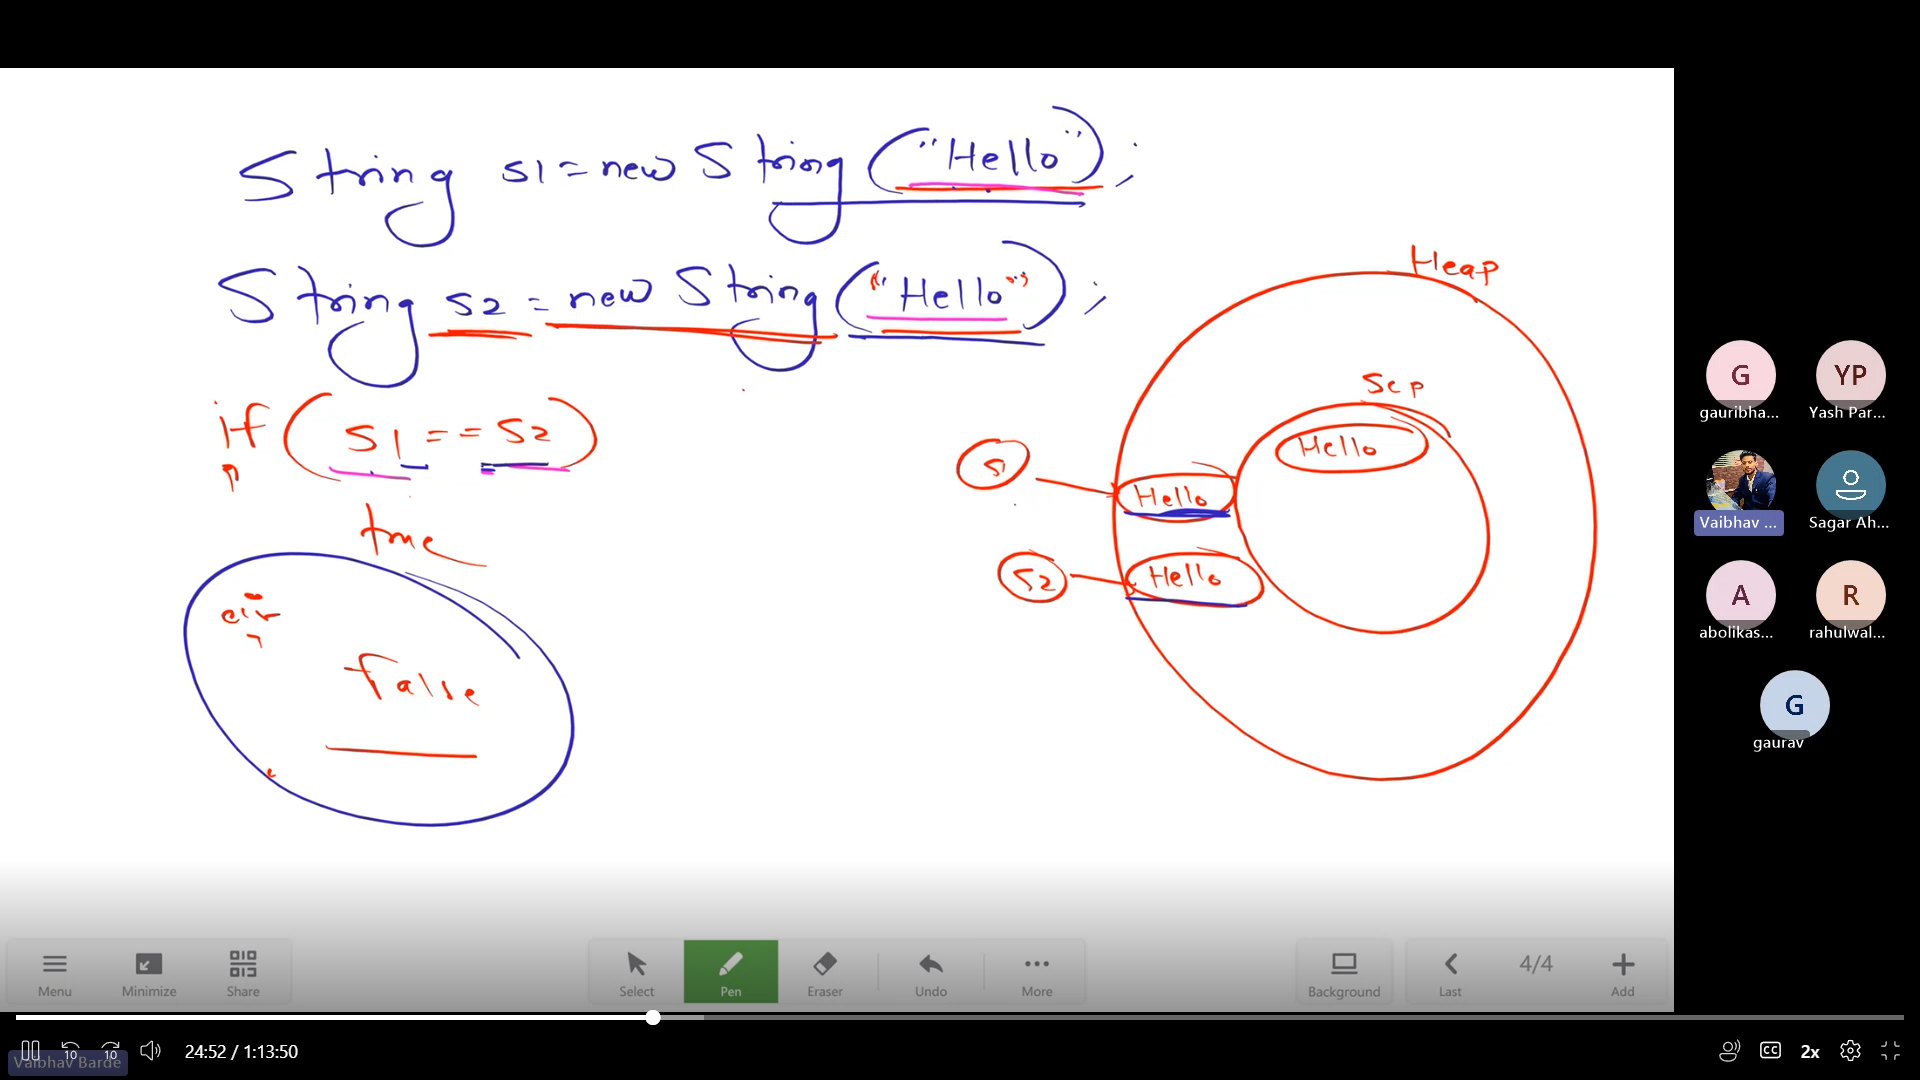 String s1 = new String ("Hello");
String s2 = new String ("Hello");
if (s1 == s2)
true
False
Heap
Scp
Hello
s1
Hello
s2
Hello
G
gauribha...
YP
Yash Par...
Vaibhav ...
Sagar Ah...
A
abolikas...
R
rahulwal...
G
gaurav
Menu
Minimize
Share
Select
Pen
Eraser
Undo
More
Background
Last
4/4
Add
10
10
24:52 / 1:13:50
Vaibhav Barde
CC
2x